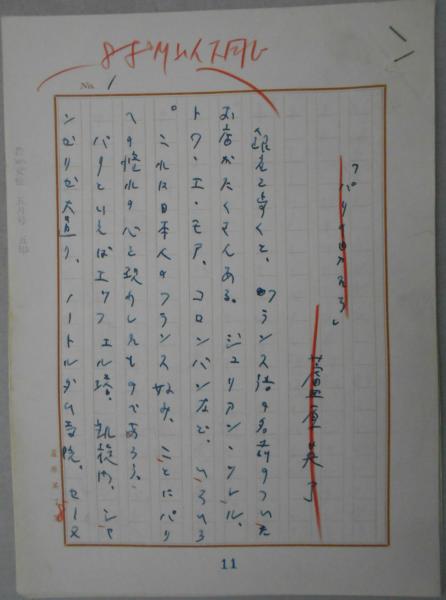 No. 1
「パリの
蘆原英了
銀座を歩くと、フランス語の名前のついた
お店がたくさんある。ジュリアン・ソレル、
トワ・エ・モア、コロンバンなど、いろいろ
。これは日本人のフランス好み、ことにパリ
への憧れの心を現わしたものであろう。
パリといえばエッフェル塔、凱旋門、シャ
ンゼリゼ大通り、ノートルダム寺院、セーヌ
11